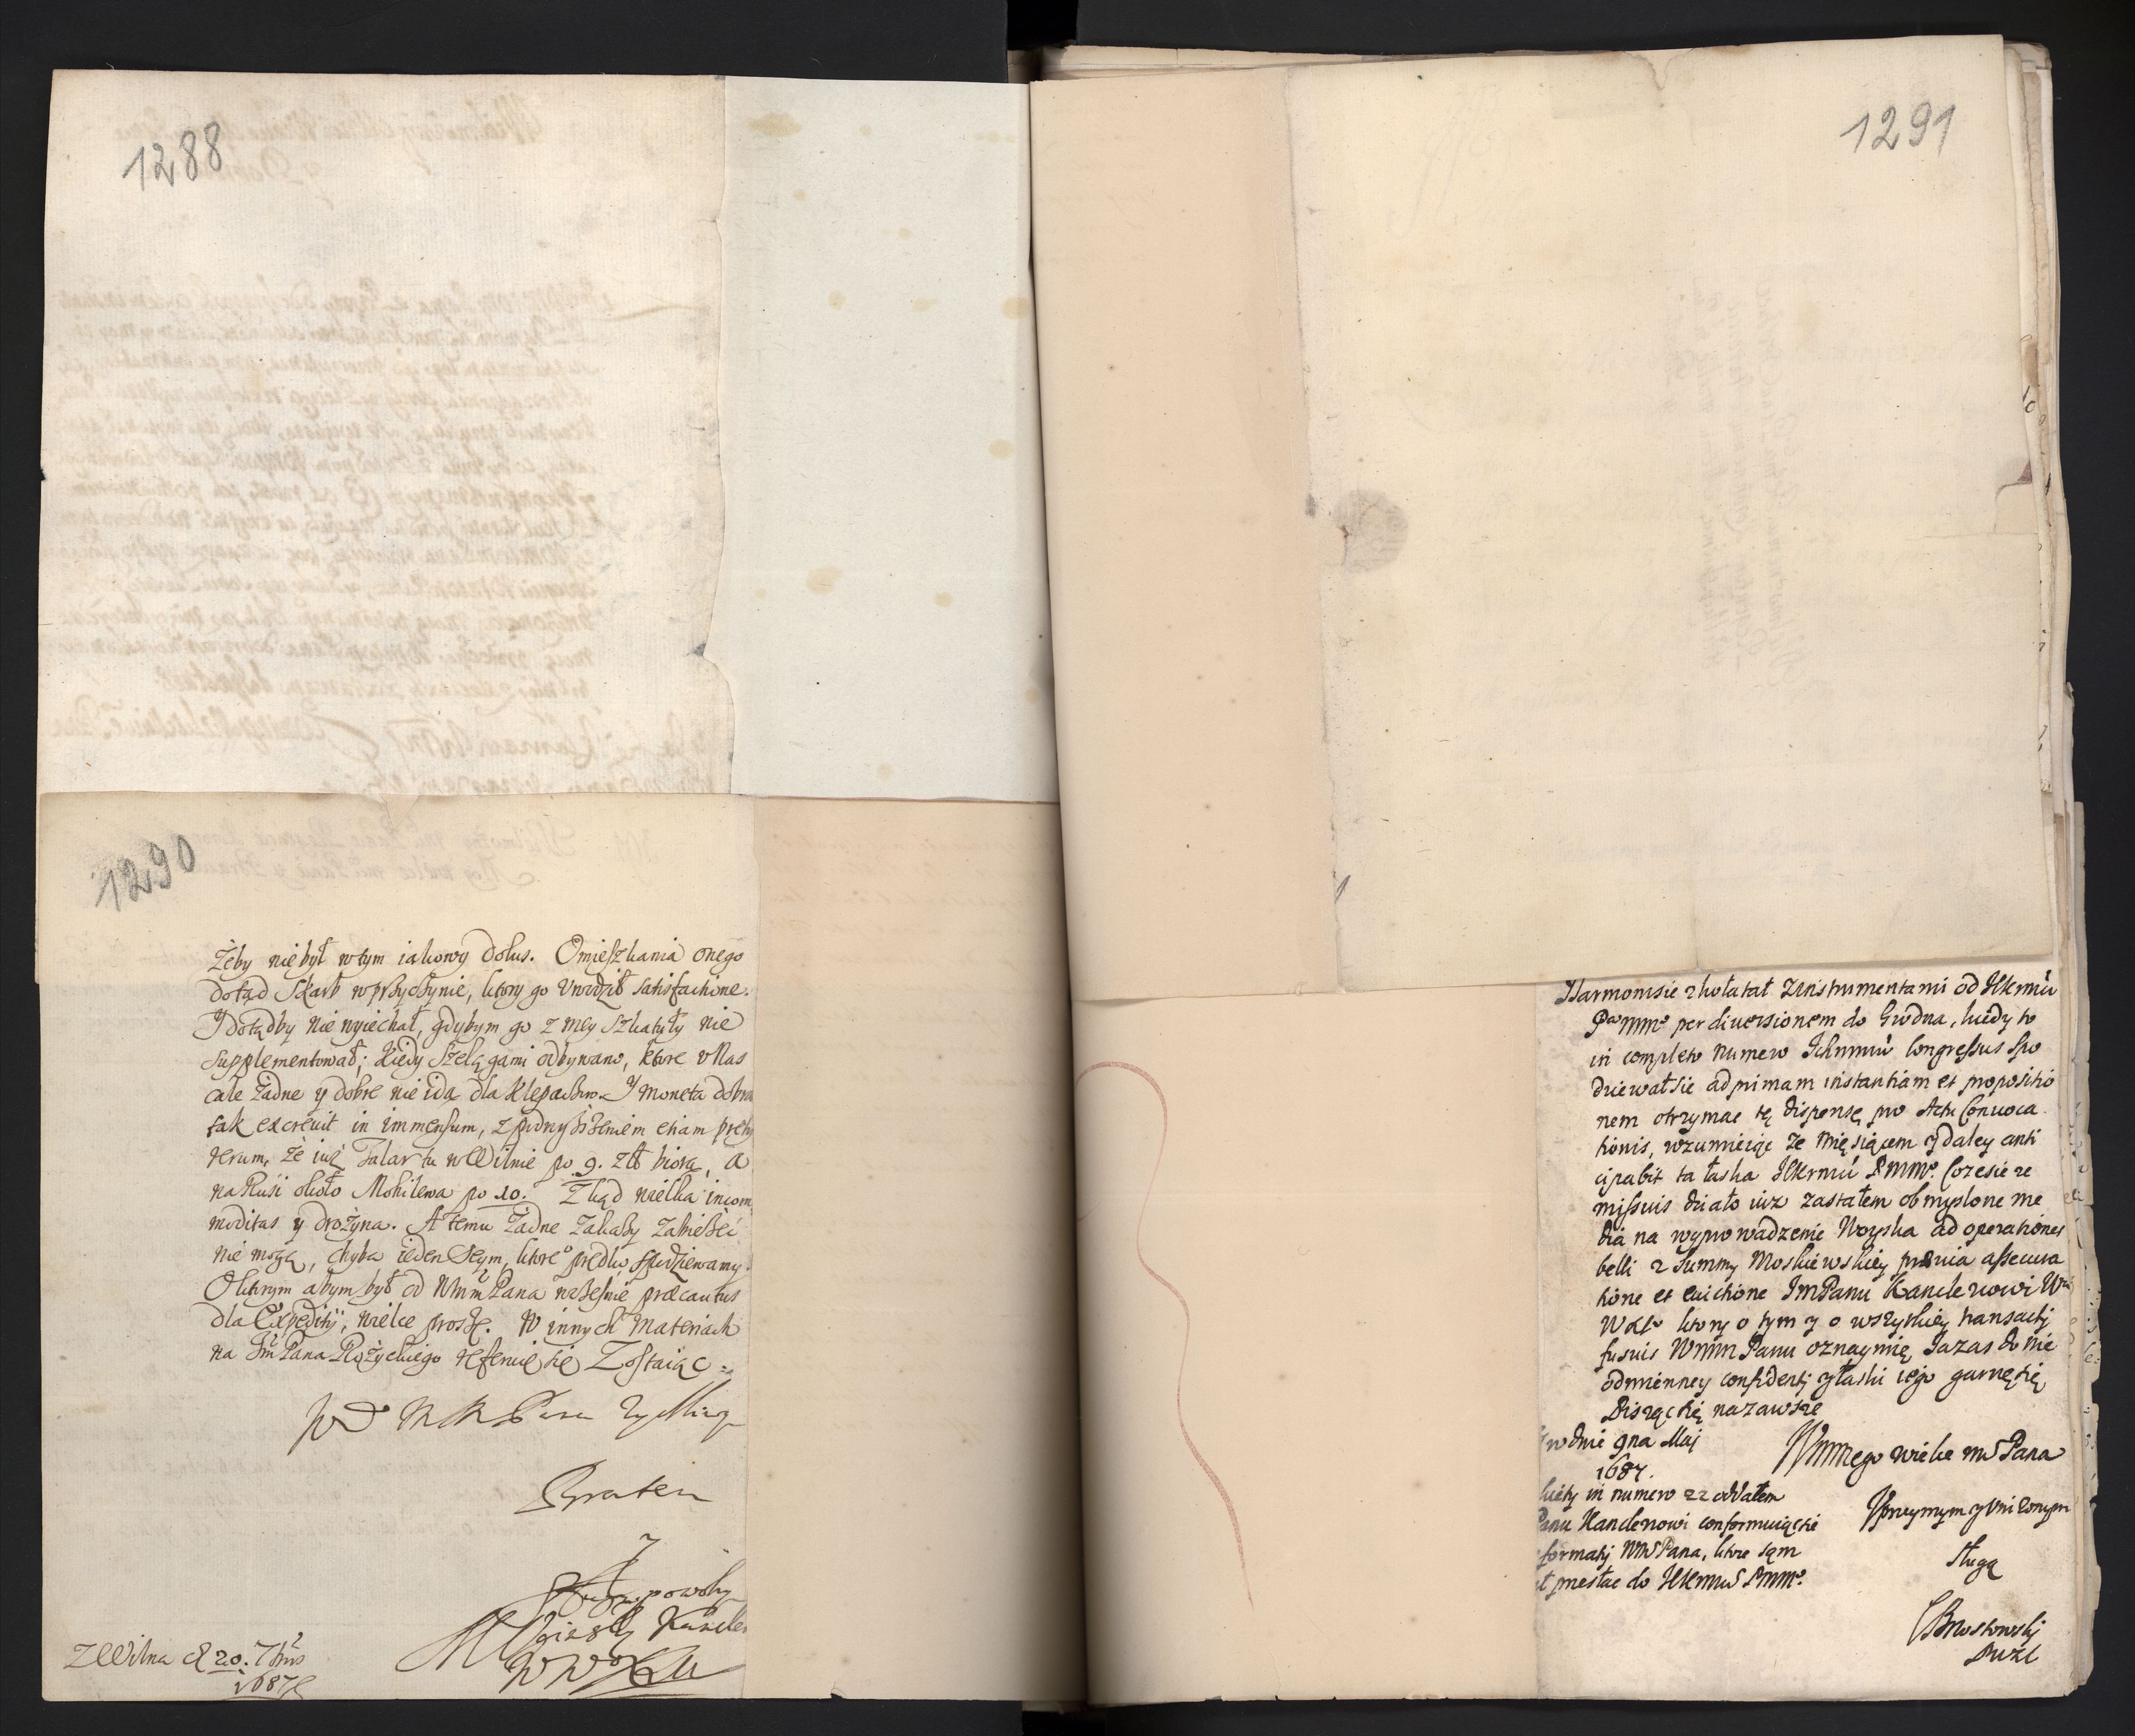 1288
1290
żeby nie był w tym iakowy dolus. Omieszkania onego
dotąd Skarb w przyczynie, ktory go
Y dotądby nie wyiechał, gdybym go z mey szkatuły nie
supplementował; kiedy szelągami odbywano, ktore v Nas
całe żadne y dobre nie idą dla Klepaczow. Y moneta dobra
tak excreuit in immensum, z podnyższeniem etiam prety
rerum, że iuż Talar tu w Wilnie po 9. zł biorą, a
na Rusi około Mohilewa po 10. Zkąd wielka incom
moditas y drożyna. A temu żadne zakazy zabieżeć
nie mogą, chyba ieden Seym, ktore° prędko spodziewamy.
O ktorym abym był od WMM Pana wcześnie præcautus
dla Expeditij, wielce proszę. W innych materiach
na Im Pana Rożyckiego referuię się Zostaiąc
Bratem
y
Sługą powolny
Kancler
W W X L
Z Wilna d 20. 7bris
1687
1291
Harmonisie zkołatał z instrumentami od JKrmći
PaMMo per diuersionem do Grodna, kiedy to
in completo numero Ichmmći Congressus spo
dziewał się ad primam instantiam et propositio
nem otrzymac tę dispensę pro Actu Conuoca
tionis, wzumieiąc że miesiącem y daley anti
cipabit ta łaska JKrmći PMMo. Coze sie re
missius działo iuz zastałem obmyslone me
dia na wyprowadzenie Woyska ad operationes
belli z Summy Moskiewskiey præuia assecura
tione et euictione ImPanu Kanclerowi W°
WXLo ktory o tym y o wszytkiey transactij
fusius WMM Panu oznaymię Ja zas do nie
odmienney confidentij y łaski iego garnę się
Pisząc się na zawsze
w dnie 9na Maij
1687.
WMMego wielce mć Pana
in numero 22 oddałem
Panu Kanclerowi conformuiąc się
formatij WMć Pana, ktore sąm
przesłac do JKrmći PMMo.
Vprzeymym y Vniżonym
sługą
CBrzostowskj